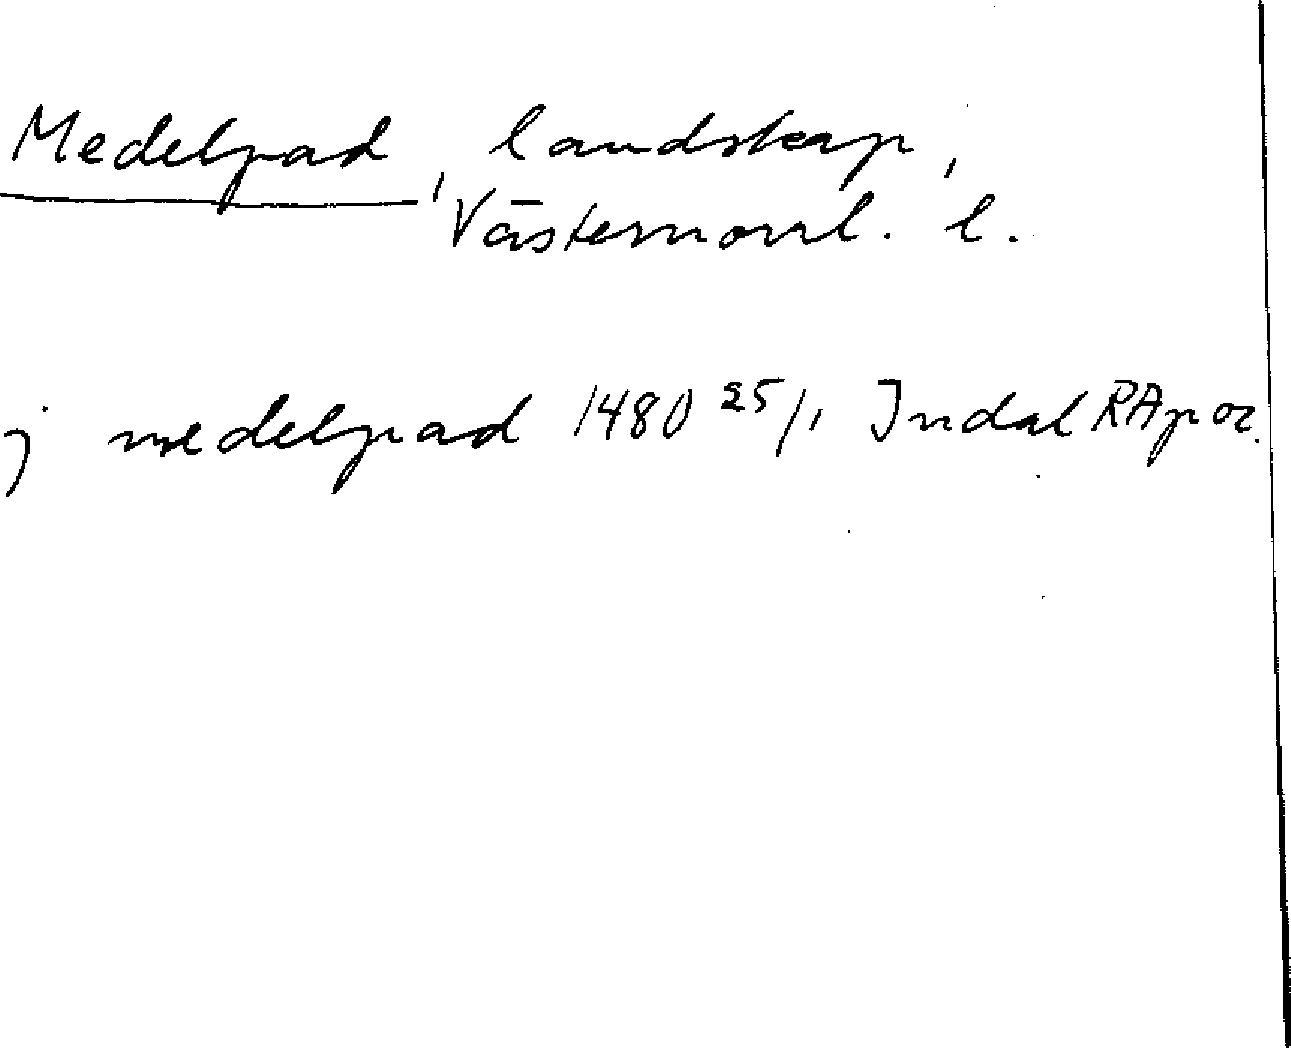 Medelpad, landskap,
Västernorrl. l.
j medelpad 1480 25/1 Indal RAp or.